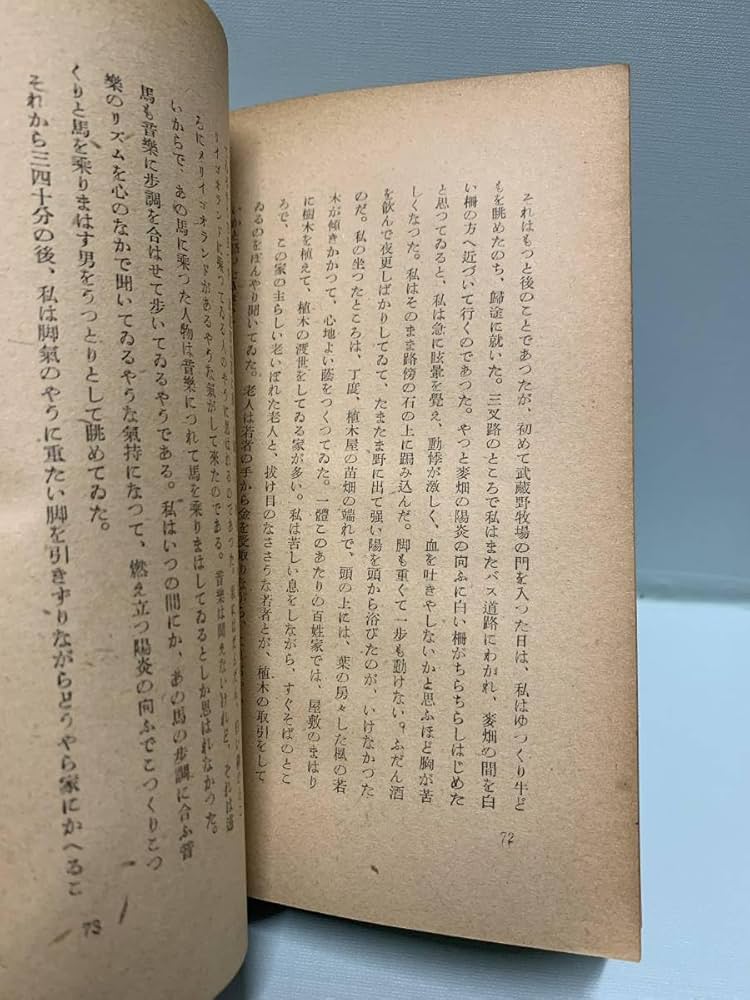 それはもつと後のことであつたが、初めて武蔵野牧場の門を入つた日は、私はゆつくり牛ど
もを眺めたのち、歸途に就いた。三叉路のところで私はまたバス道路にわかれ、麥畑の間を白
い柵の方へ近づいて行くのであつた。やつと麥畑の陽炎の向ふに白い柵がちらちらしはじめた
と思つてゐると、私は急に眩暈を覺え、動悸が激しく、血を吐きやしないかと思ふほど胸が苦
しくなつた。私はそのまま路傍の石の上に跼み込んだ。脚も重くて一步も動けない。ふだん酒
を飮んで夜更しばかりしてゐて、たまたま野に出て强い陽を頭から浴びたのが、いけなかつた
のだ。私の坐つたところは、丁度、植木屋の苗畑の端れで、頭の上には、葉の房々した楓の若
木が傾きかかつて、心地よい蔭をつくつてゐた。一體このあたりの百姓家では、屋敷のまはり
に樹木を植えて、植木の渡世をしてゐる家が多い。私は苦しい息をしながら、すぐそばのとこ
ろで、この家の主らしい老いぼれた老人と、拔け目のなささうな若者とが、植木の取引をして
ゐるのをぼんやり聞いてゐた。老人は若者の手から金を受取りながら、
72
ろにメリイゴオランドがあるやうな氣がして來たのである。音樂は聞えないけれど、それは遠
いからで、あの馬に乘つた人物は音樂につれて馬を乘りまはしてゐるとしか思はれなかつた。
馬も音樂に步調を合はせて步いてゐるやうである。私はいつの間にか、あの馬の步調に合ふ音
樂のリズムを心のなかで聞いてゐるやうな氣持になつて、燃え立つ陽炎の向ふでこつくりこつ
くりと馬を乘りまはす男をうつとりとして眺めてゐた。
それから三四十分の後、私は脚氣のやうに重たい脚を引きずりながらどうやら家にかへるこ
73